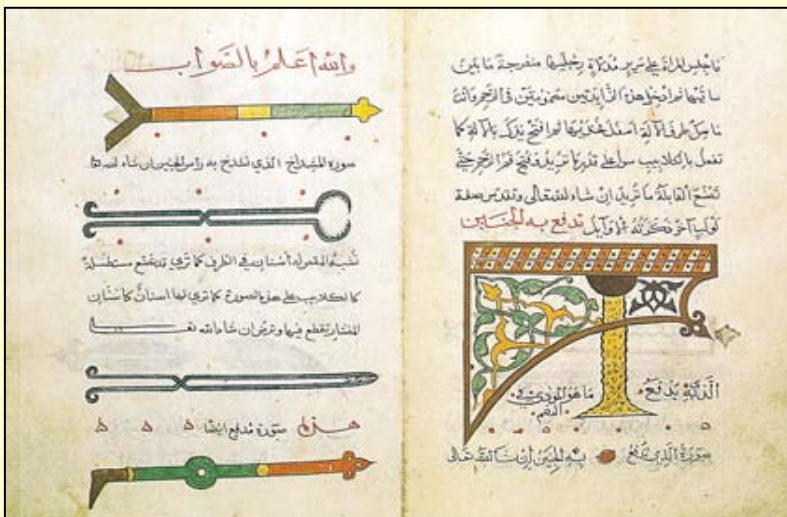 فاجلس المراة على سرير مدلاة رجليها منفرجة ما بين
ساقيها ثم ادخل هذه الزايدتين مضمومتين في الرحم وانت
ماسك طرف الالة اسفل فخديها ثم افتح يدك بالالة كما
تفعل بالكلاليب سوا على قدر ما تريد فتح فم الرحم حتى
تصنع القابلة ما تريد ان شاء الله تعالى
لولب اخر ذكرته الاوايل تدفع به الجنين
الذي يدفع ما هو الموذي في
صورة الذي تدفع به الجنين ان شا الله تعالى
والله اعلم بالصواب
صورة المشداخ الذي تشدخ به راس الجنين ان شاء الله
تشبه المقص له اسنان في الطرف كما تري وقد يصنع مستطيلة
كالكلاليب على هذه الصورة كما تري لها اسنان كاسنان
المنشار يقطع فيها وترض ان شا الله تعا
هذه صورة مدفع ايضا